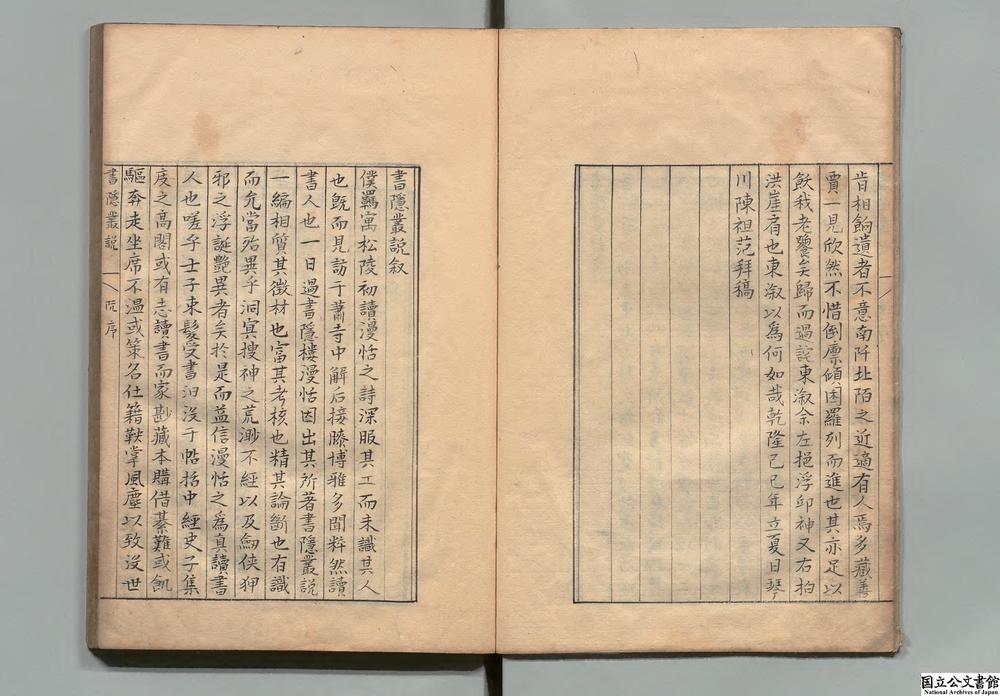 肯相餉遺者不意南阡北陌之近適有人焉多藏善
賈一見欣然不惜倒廩傾囷羅列而進也其亦足以
飫我老饕矣歸而過詫東溆余左挹浮邱神又右拍
洪崖肩也東溆以為何如哉乾隆己巳年立夏日琴
川陳祖范拜稿
書隱叢說叙
僕羈寓松陵初讀漫恬之詩深服其工而未識其人
也既而見訪于蕭寺中解后接膝博雅多聞粹然讀
書人也一日過書隱樓漫恬因出其所著書隱叢說
一編相質其徵材也富其考核也精其論斷也有識
而允當殆異乎洞冥搜神之荒渺不經以及劍俠狎
邪之浮誕艷異者矣於是而益信漫恬之為真讀書
人也嗟乎士子束髮受書汩沒于帖括中經史子集
庋之高閣或有志讀書而家尠藏本購借綦難或飢
驅奔走坐席不溫或策名仕籍鞅掌風塵以致沒世
書隱叢說 阮序
国立公文書館
National Archives of Japan